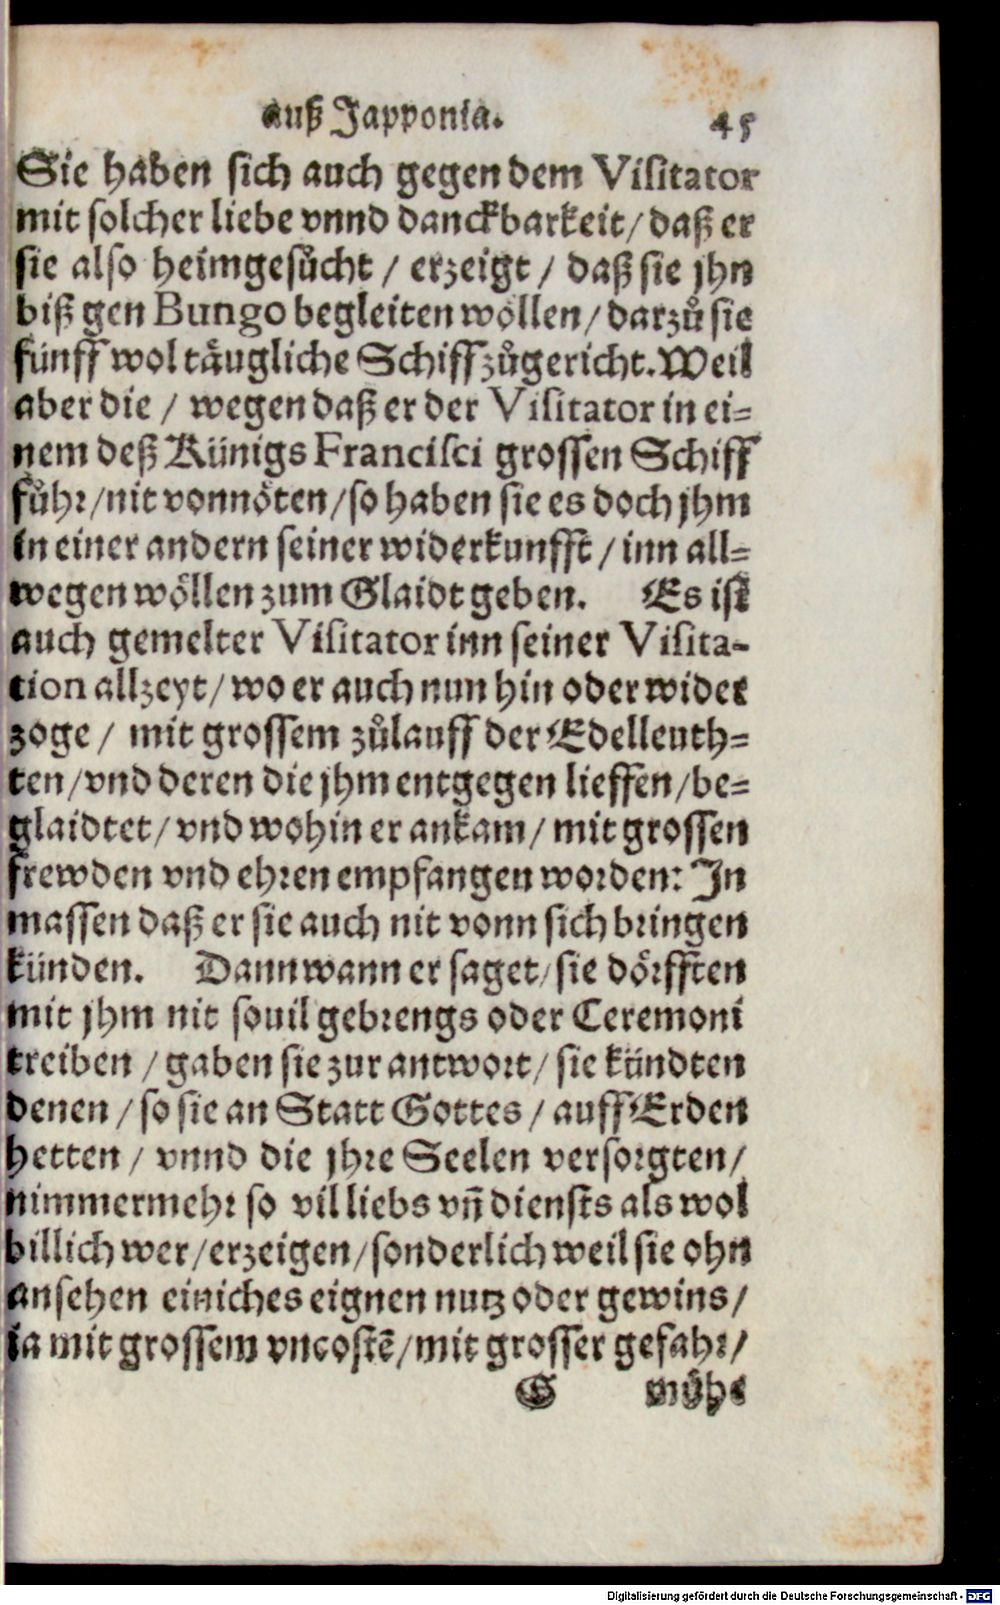 auß Japponia. 45
Sie haben sich auch gegen dem Visitator
mit solcher liebe vnnd danckbarkeit/ daß er
sie also heimgesůcht / erzeigt / daß sie jhn
biß gen Bungo begleiten wöllen/ darzů sie
fünff wol täugliche Schiff zůgericht. Weil
aber die / wegen daß er der Visitator in ei=
nem deß Künigs Francisci grossen Schiff
fůhr/nit vonnöten/so haben sie es doch jhm
in einer andern seiner widerkunfft / inn all=
wegen wöllen zum Glaidt geben. Es ist
auch gemelter Visitator inn seiner Visita-
tion allzeyt/ wo er auch nun hin oder wider
zoge / mit grossem zůlauff der Edelleuth=
ten/vnd deren die jhm entgegen lieffen/be=
glaidtet/ vnd wohin er ankam/ mit grossen
frewden vnd ehren empfangen worden: In
massen daß er sie auch nit vonn sich bringen
künden. Dann wann er saget/ sie dörfften
mit jhm nit souil gebrengs oder Ceremoni
treiben / gaben sie zur antwort/ sie kündten
denen / so sie an Statt Gottes / auff Erden
hetten / vnnd die jhre Seelen versorgten/
nimmermehr so vil liebs vñ diensts als wol
billich wer/erzeigen/sonderlich weil sie ohn
ansehen einiches eignen nutz oder gewins/
ia mit grossem vncostē/mit grosser gefahr/
G mühe
Digitalisierung gefördert durch die Deutsche Forschungsgemeinschaft - DFG